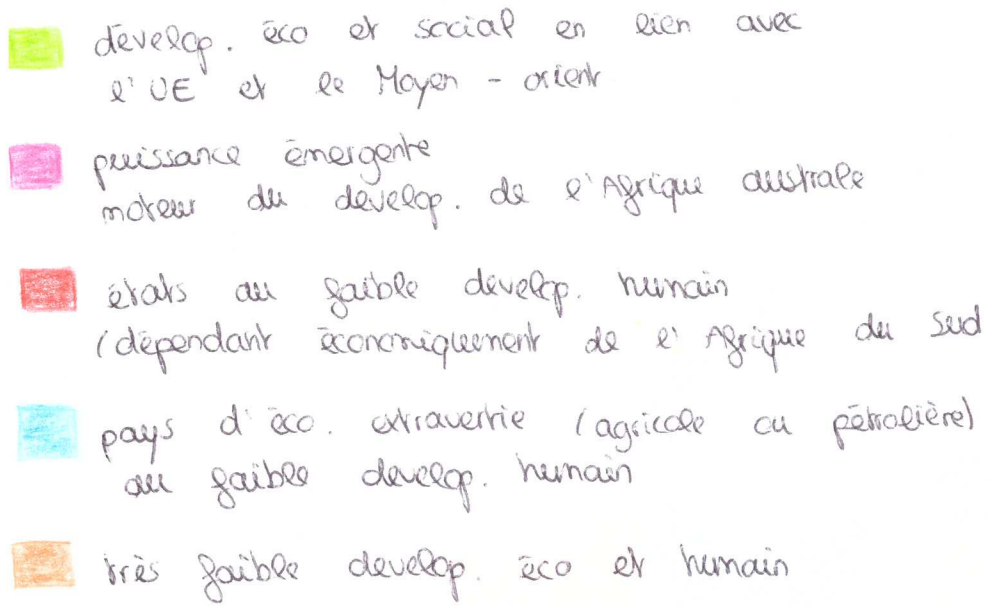 dévelop. éco et social en lien avec
l'UE et le Moyen - orient
puissance émergente
moteur du dévelop. de l'Afrique australe
états au faible dévelop. humain
(dépendant économiquement de l'Afrique du sud
pays d'éco. extravertie (agricole ou pétrolière)
au faible develop. humain
très faible develop. éco et humain